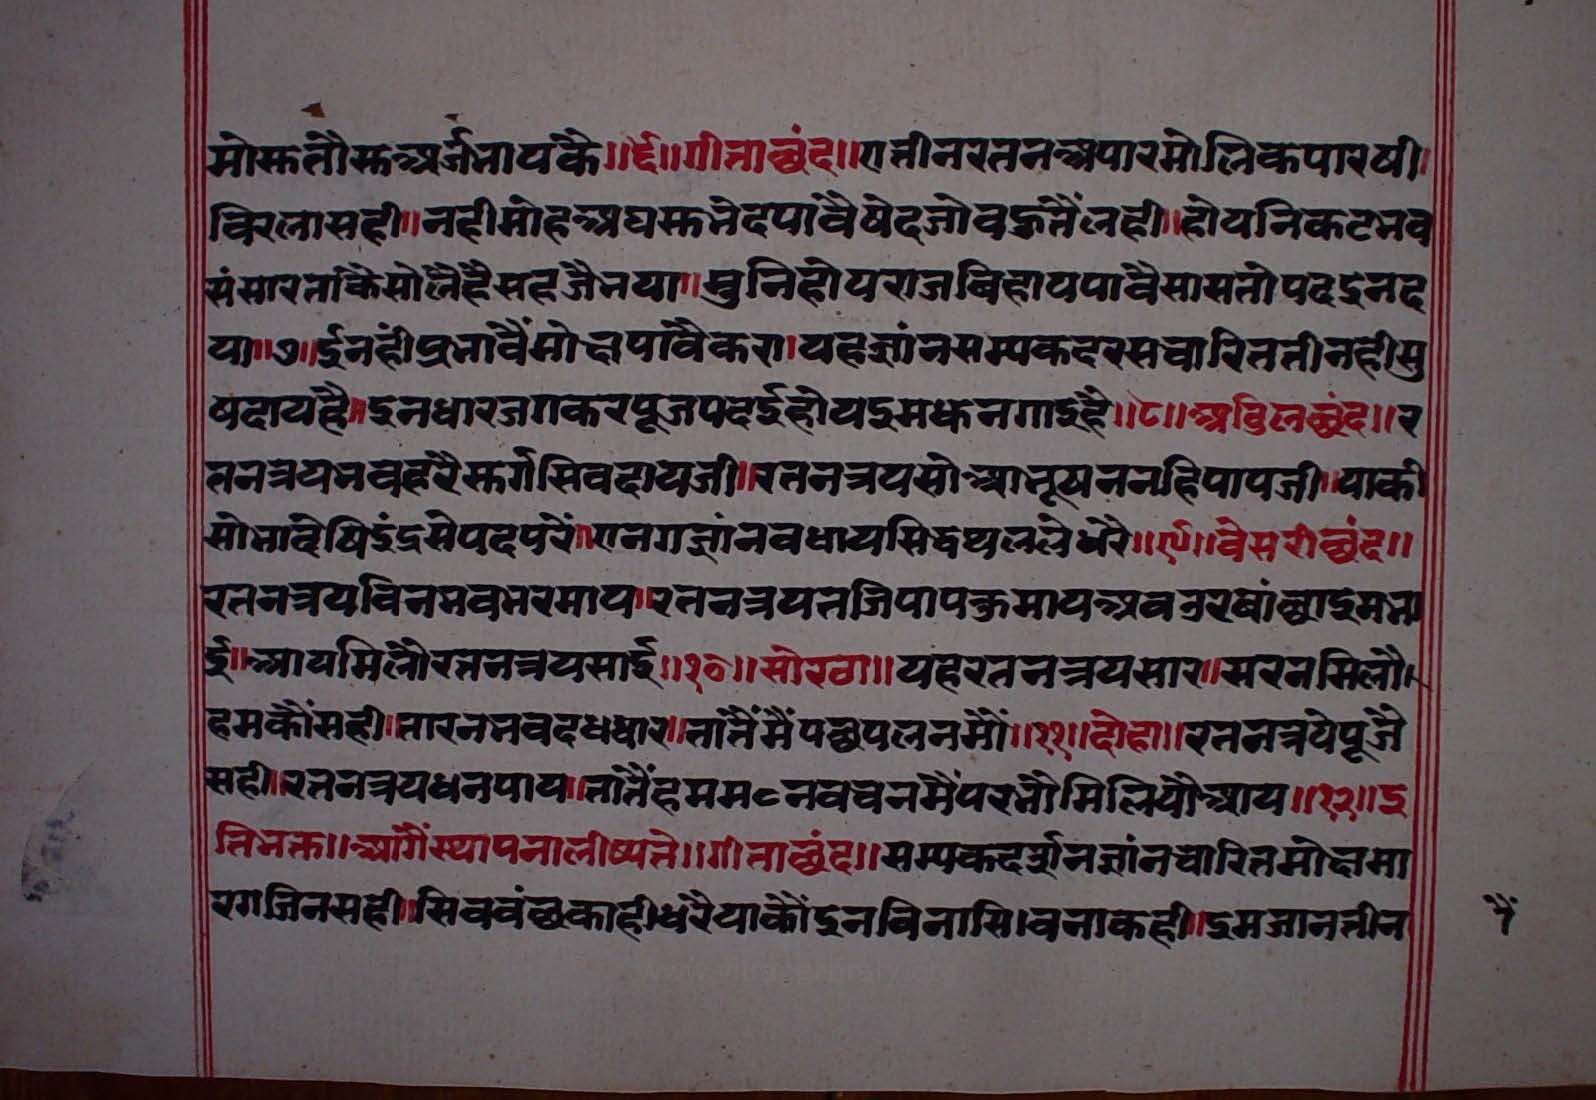 मोक्षतौक्षअर्जनायकै॥६॥गीताछंद॥ए तीनरतनअपारमोलिकपारषी।
विरलासही॥नहीमोहअघक्षनेदपांवैषेदजोवकुतैंलही॥होयनिकटभव
संसारतांकैसोलैहैसहजैनया॥मुनिहोयराजबिहायपावैसासतोपदइनद
या॥७॥ईनहींप्रभावैंमोक्षपांवैकरा।यहज्ञांनसम्यकदरसचारिततीनहीसु
षदायहै॥इनधारजगकरपूजपदईहोयइमझनगाइहै॥८॥अडिलछंद॥र
तनत्रयभवहरैस्वर्गसिवदायजी॥रतनत्रयसोआभूषननहिपापजी॥याकी
सोभादेषिइंद्रसेपदपरैं॥एनगज्ञांनवधायसिद्धथलले धरै॥९॥वेसरीछंद॥
रतनत्रयविनभवभरमाय॥रतनत्रयतजिपापकमायअवनुरवांछाइमभा
ई॥आयमिलौरतनत्रयसाई॥१०॥सोरठा॥यहरतनत्रयसार॥सरनमिलौ।
हमकौंसही॥तारनभवदधधार॥तांतैंमैंपछपलनमौं॥११॥दोहा॥रतनत्रयेपूजै
सही॥रतनत्रयधनपाय॥तांतैंहममनवचनमैंपरतौमिलियौआय॥१२॥इ
तिभक्त॥आगैंस्थापनालीष्यते॥गीताछंद॥सम्यकदर्शनज्ञांनचारितमोक्षमा
रगजिनसही॥सिववंछकाहीधरैयाकौंइनविनासिवनाकही॥इमजानतीन
नैं